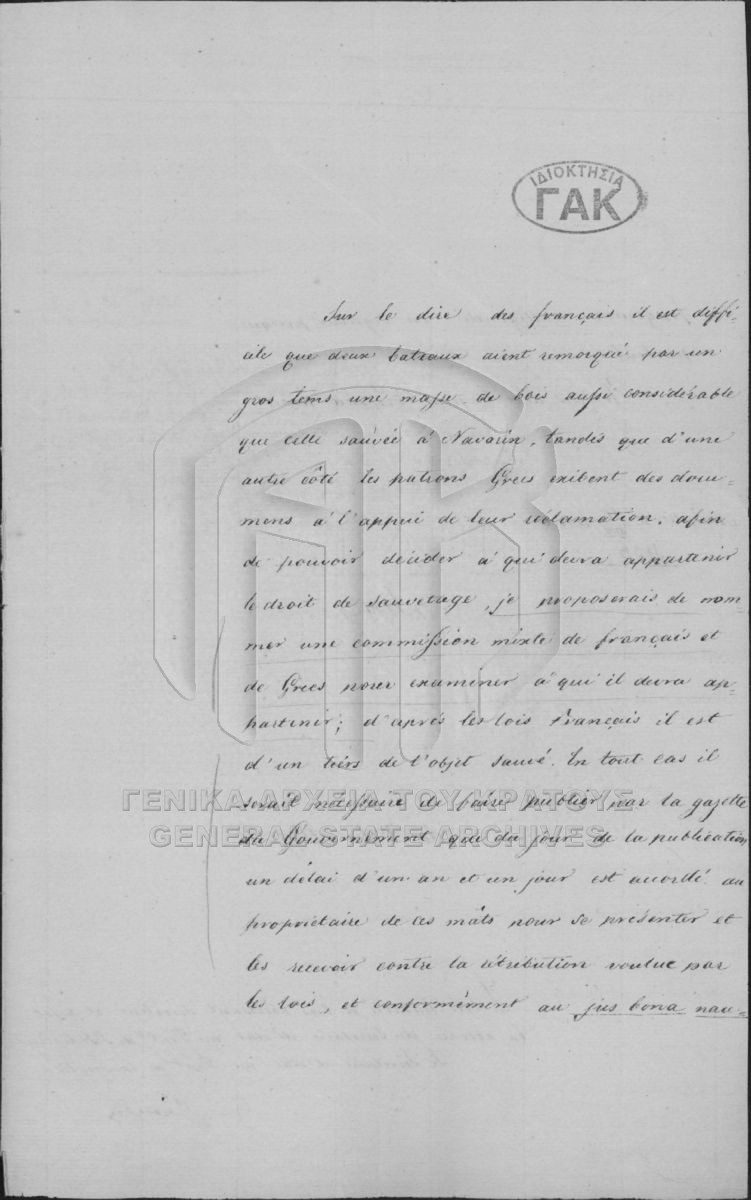 ΙΔΙΟΚΤΗΣΙΑ
ΓΑΚ
Sur le dire des français il est diffi-
cile que deux bateaux aient remorqué par un
gros tems une masse de bois aussi considérable
que celle sauvée à Navarin, tandis que d'une
autre côté les patrons Grecs exibent des docu-
mens à l'appui de leur réclamation, afin
de pouvoir décider à qui devra appartenir
le droit de sauvetage, je proposerais de nom-
mer une commission mixte de français et
de Grecs pour examiner à qui il devra ap-
partenir; d'après les lois Français il est
d'un tiérs de l'objet sauvé. En tout cas il
serait nécessaire de faire publier par la gazette
du Gouvernement que du jour de la publication
un délai d'un an et un jour est accordé au
propriétaire de ces mâts pour se présenter et
les recevoir contre la rétribution voulue par
les lois, et conformément au jus bona nau-
ΓΕΝΙΚΑ ΑΡΧΕΙΑ ΤΟΥ ΚΡΑΤΟΥΣ
GENERAL STATE ARCHIVES